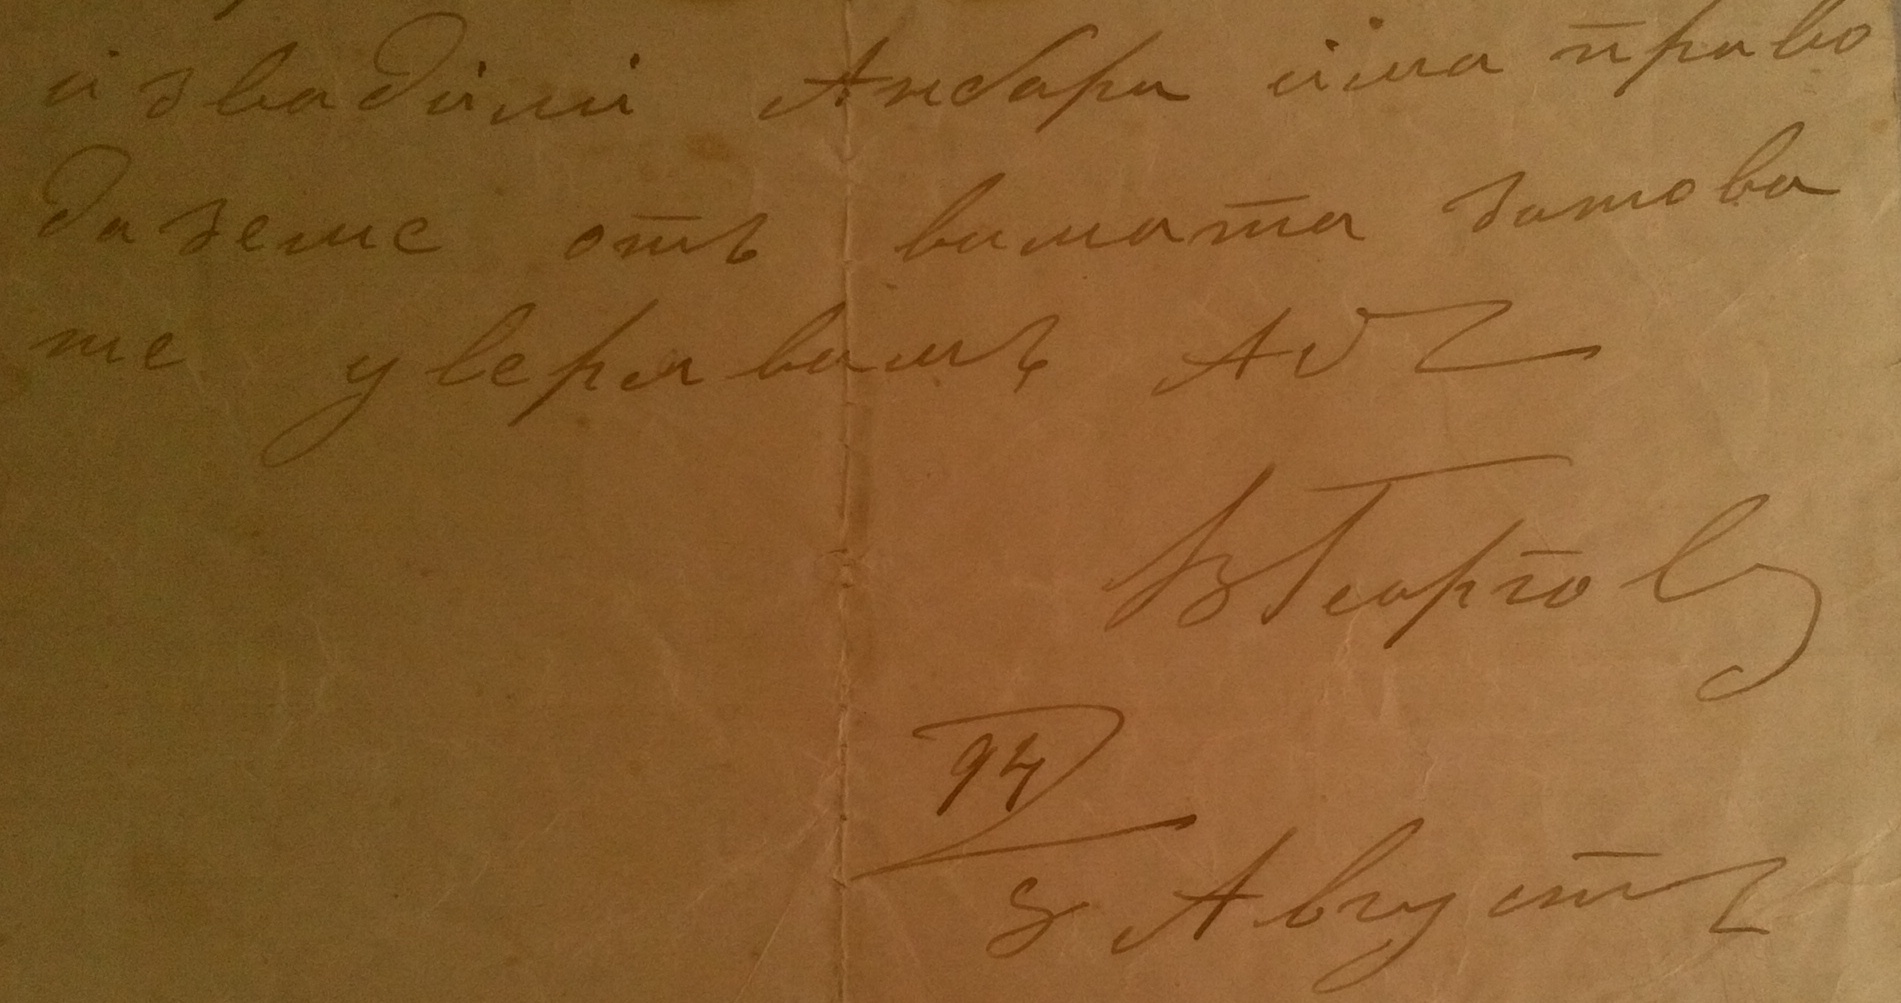 извадили Анбара има право
да земе отъ вимата затова
те уверявамъ
ВГеоргов
94
Августъ